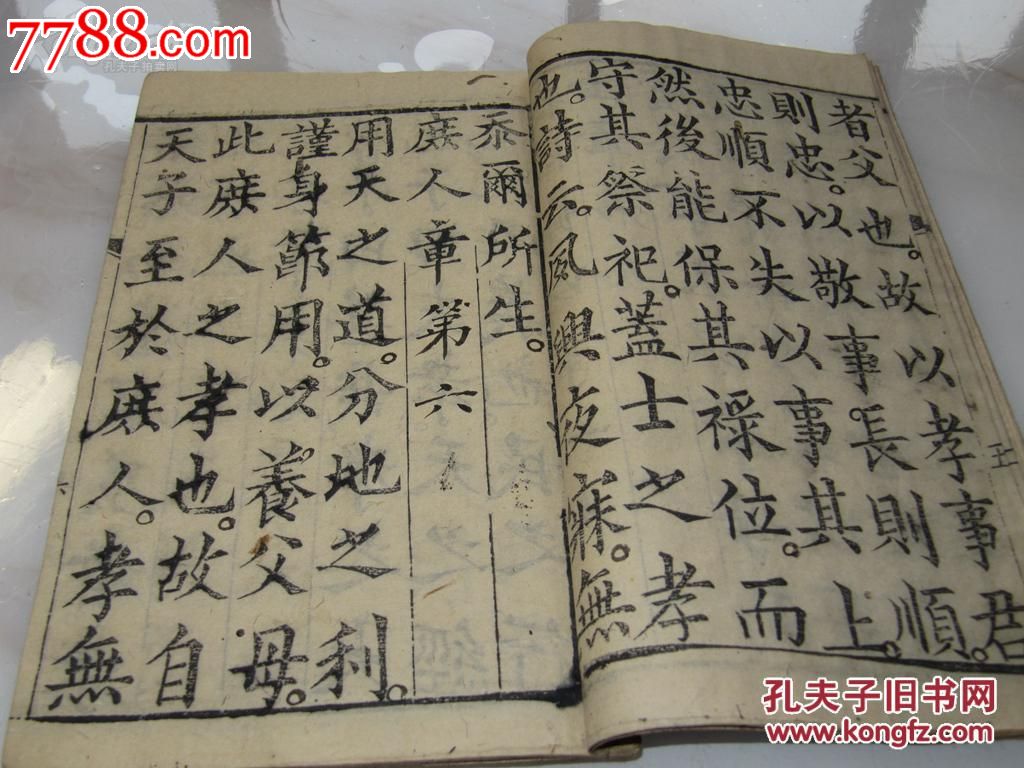 7788.com
孔夫子拍卖网
者父也。故以孝事君
則忠。以敬事長則順。
忠順不失以事其上。
然後能保其祿位。而
守其祭祀。蓋士之孝
也。詩云。夙興夜寐。無
五
忝爾所生。
庶人章第六
用天之道。分地之利。
謹身節用。以養父母。
此庶人之孝也。故自
天子至於庶人。孝無
孔夫子旧书网
www.kongfz.com